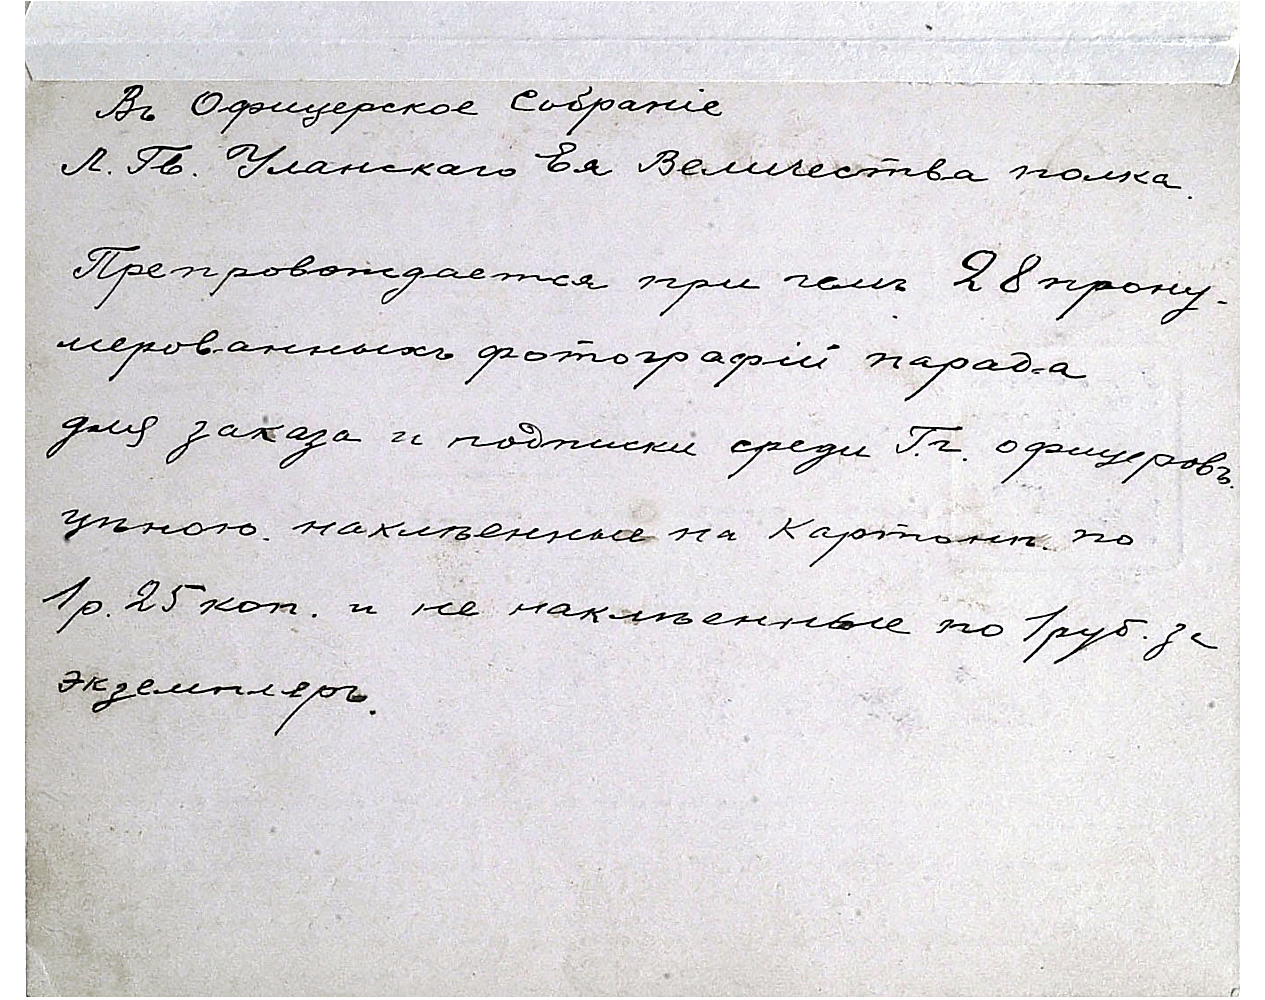 Въ Офицерское Собраніе
Л. Гв. Уланскаго Ея Величества полка.
Препровождается при семъ 28 прону-
мерованныхъ фотографій парада
для заказа и подписки среди Г.г. офицеровъ.
цѣною. наклѣенные на Картонѣ. по
1 р. 25 коп. и не наклѣенные по 1 руб. за
экземпляръ.